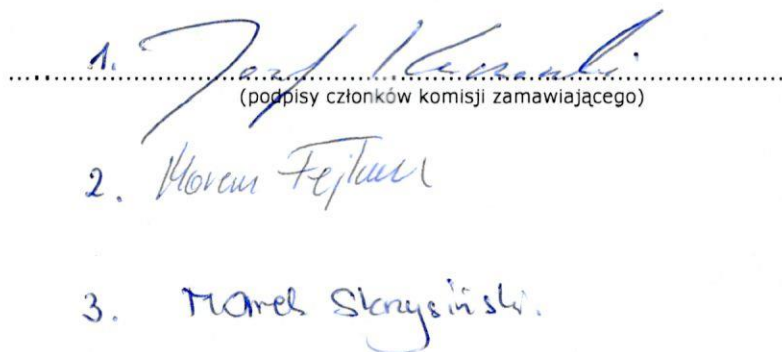 1. Józef
(podpisy członków komisji zamawiającego)
2. Marcin
3. Marek Skrzysiński.